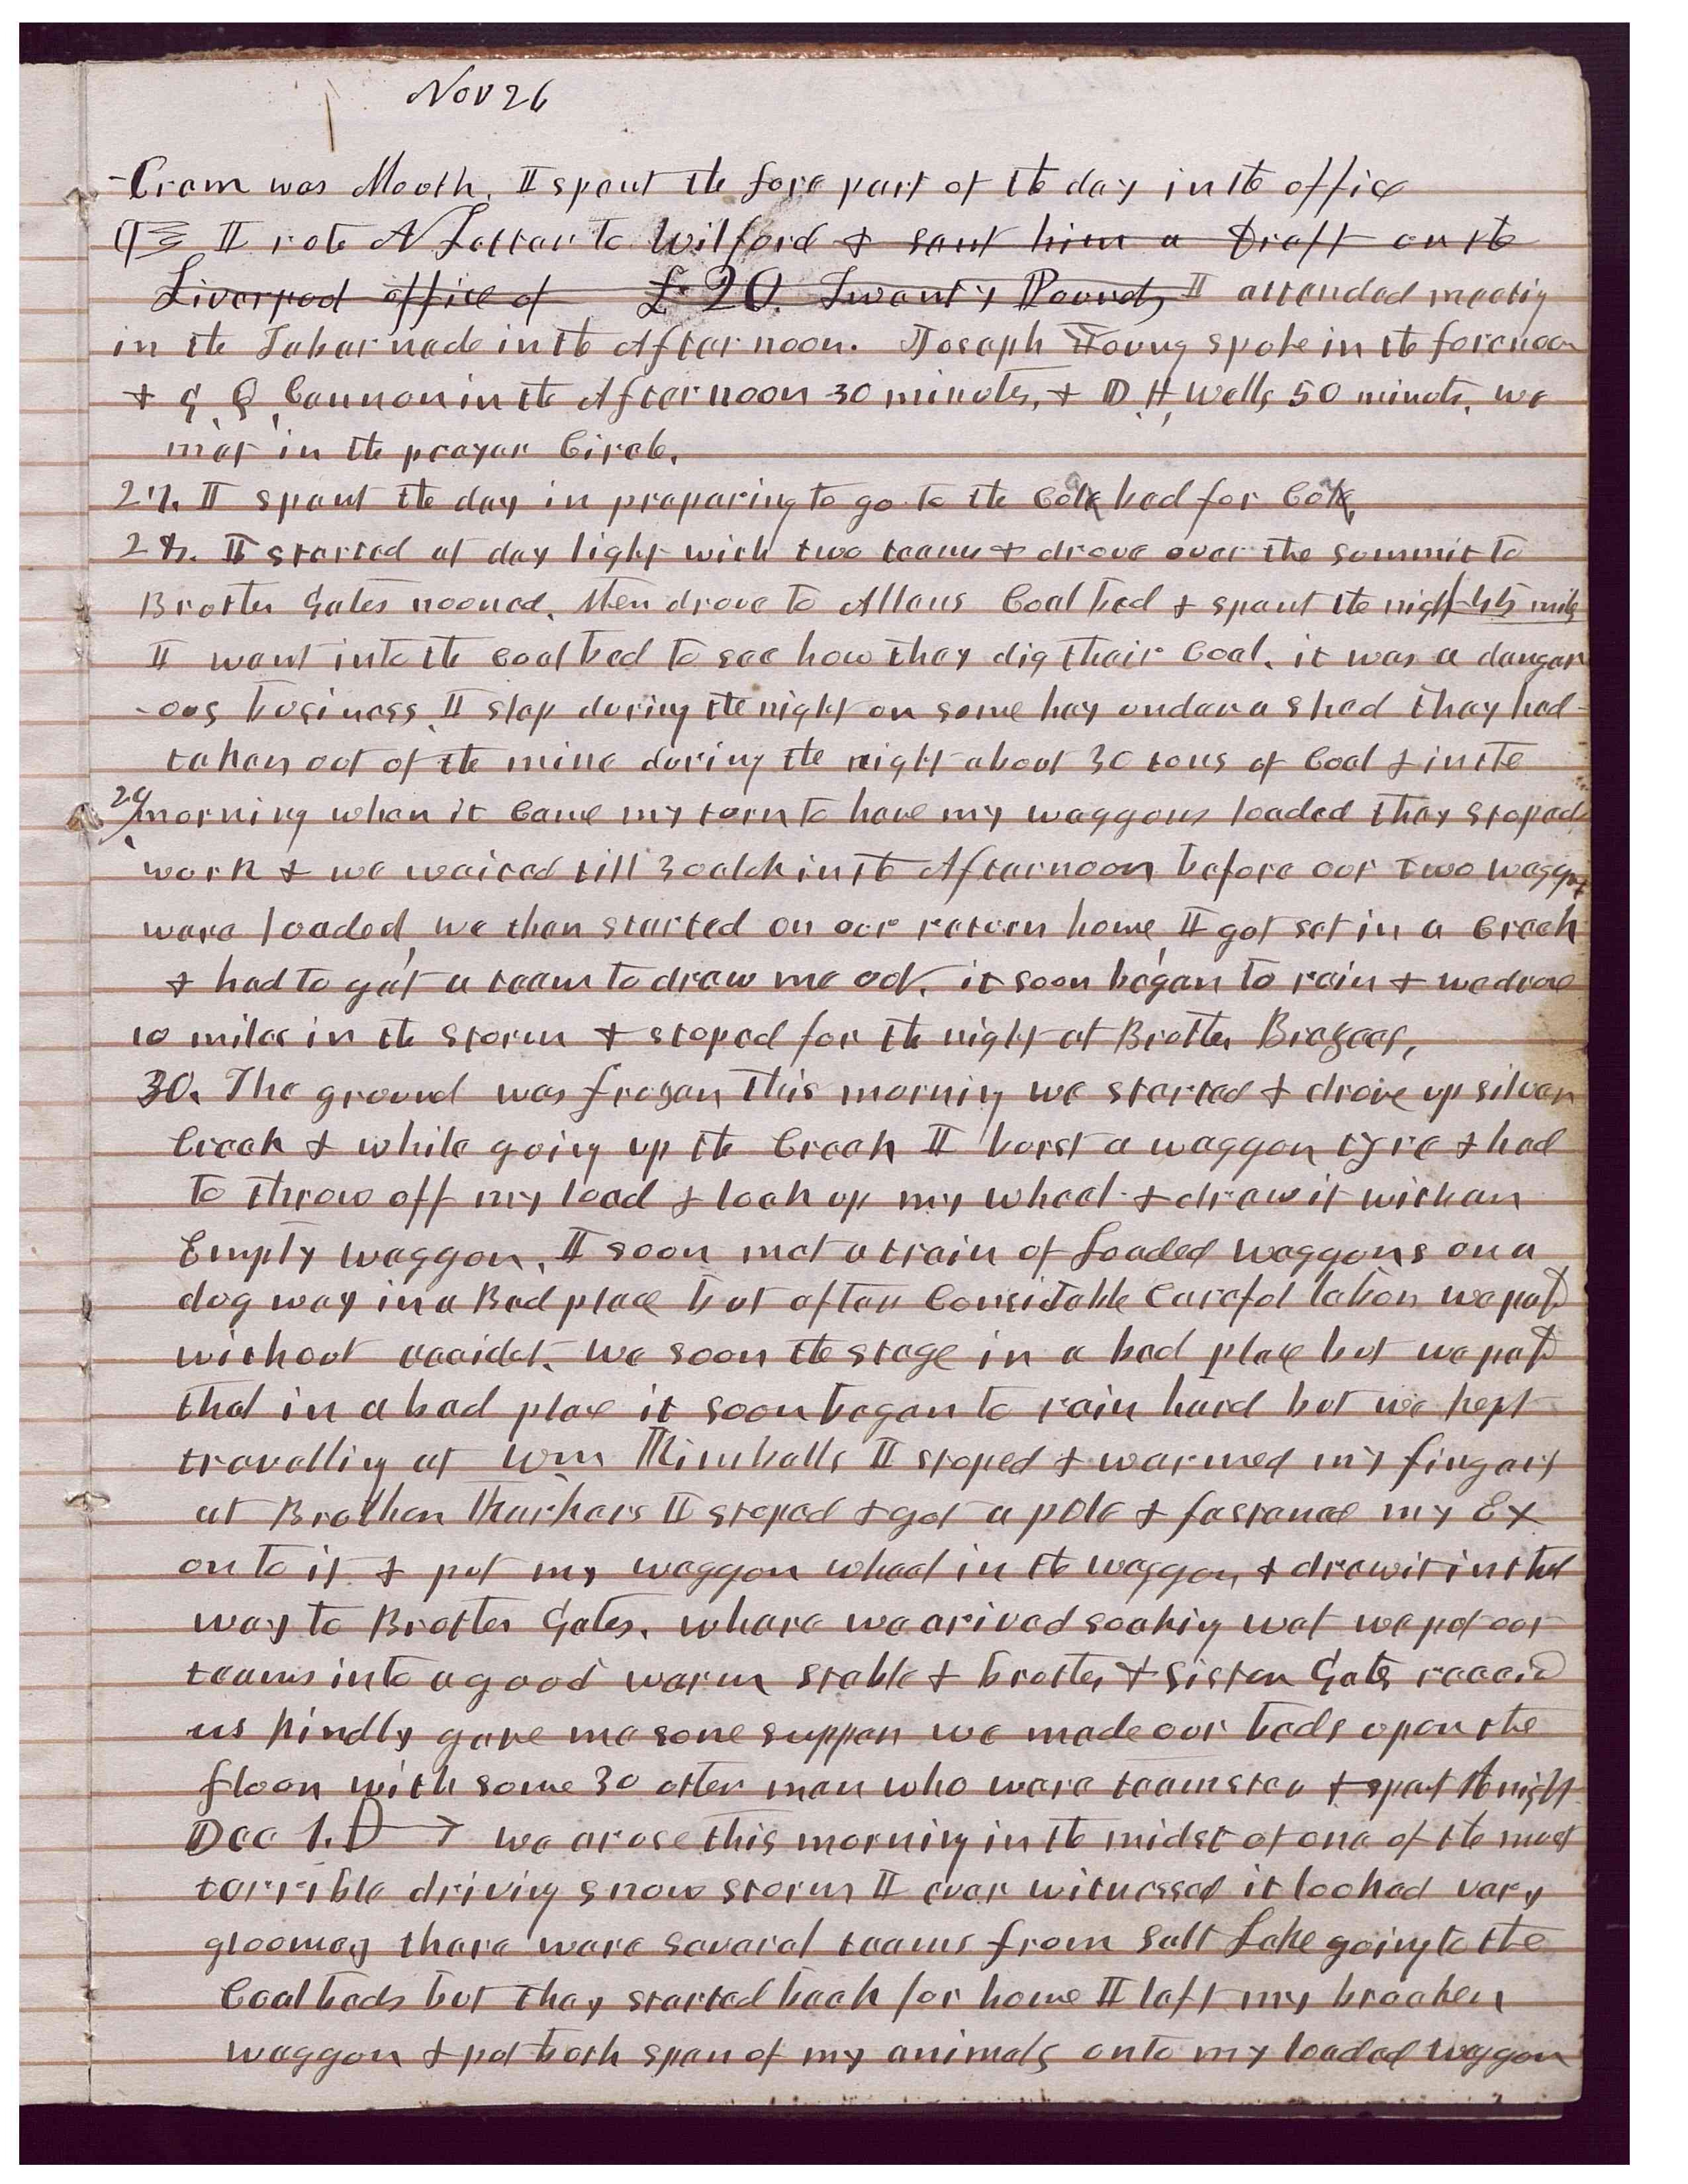 Nov 26
-Cram was Mouth. I spent the fore part of the day in the office
I rote A Letter to Wilford & sent him a Draft on the
Liverpool office of £20. Twenty Pounds I attended meetig
in the Tabarnacle in the Afternoon. Joseph Young spoke in the forenoon
& G Q Cannon in the Afternoon 30 minutes, & D. H, Wells 50 minuts, we
met in the prayer Circle.
27. I spent the day in preparing to go to the Coal bed for Coal,
28. I started at day light with two teams & drove over the summit to
Brother Gates nooned, then drove to Allens Coal bed & spent the night 45 mils
I went into the coal bed to see how they dig their Coal. it was a danger
-ous business I slep during the night on some hay under a shed they had
taken out of the mine during the night about 30 tons of Coal & in the
29 morning when it Came my turn to have my waggons loaded they stoped
work & we waited till 3 oclok in the Afternoon before our two waggons
were loaded, we then started on our return home, I got set in a Creek
& had to get a team to draw me out. it soon began to rain & we drove
10 miles in the storm & stoped for the night at Brother
30. The ground was frozen this morning we started & drove up silver
Creek & while going up the Creek I burst a waggon tyre & had
to throw off my load & look up my wheel & drew it with an
Empty waggon, I soon met a train of Loaded waggons on a
dug way in a Bad place but after Considable Careful labor we past
without accidet. we soon the stage in a bad place but we past
that in a bad place it soon began to rain hard but we kept
travellig at Wm Kimballs I stoped & warmed my fingers
at Brother I stoped & got a pole & fastened my Ex
on to it & put my waggon wheel in the waggon & drew it in that
way to Brother Gates. where we arived soakig wet we put our
teams into a good warm stable & brother & Sister Gates receivd
us kindly gave me some supper we made our beds upon the
floor with some 30 other men who were teamster & spent the night
Dec 1. we arose this morning in the midst of one of the most
terrible driving snow storm I ever witnessed it looked very
gloomey there were several teams from Salt Lake going to the
Coal beds but they started back for home I left my broaken
waggon & put both span of my animals onto my loaded waggon